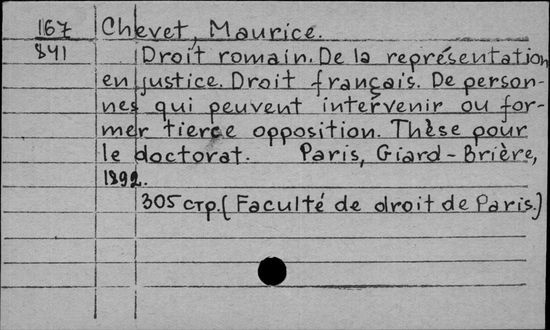 167 Chevet, Maurice.
841 Droit romain. De la représentation
en justice. Droit français. De person-
nes qui peuvent intervenir ou for-
mer tierce opposition. Thèse pour
le doctorat. Paris, Giard-Brière,
1892.
305 стр. (Faculté de droit de Paris.)